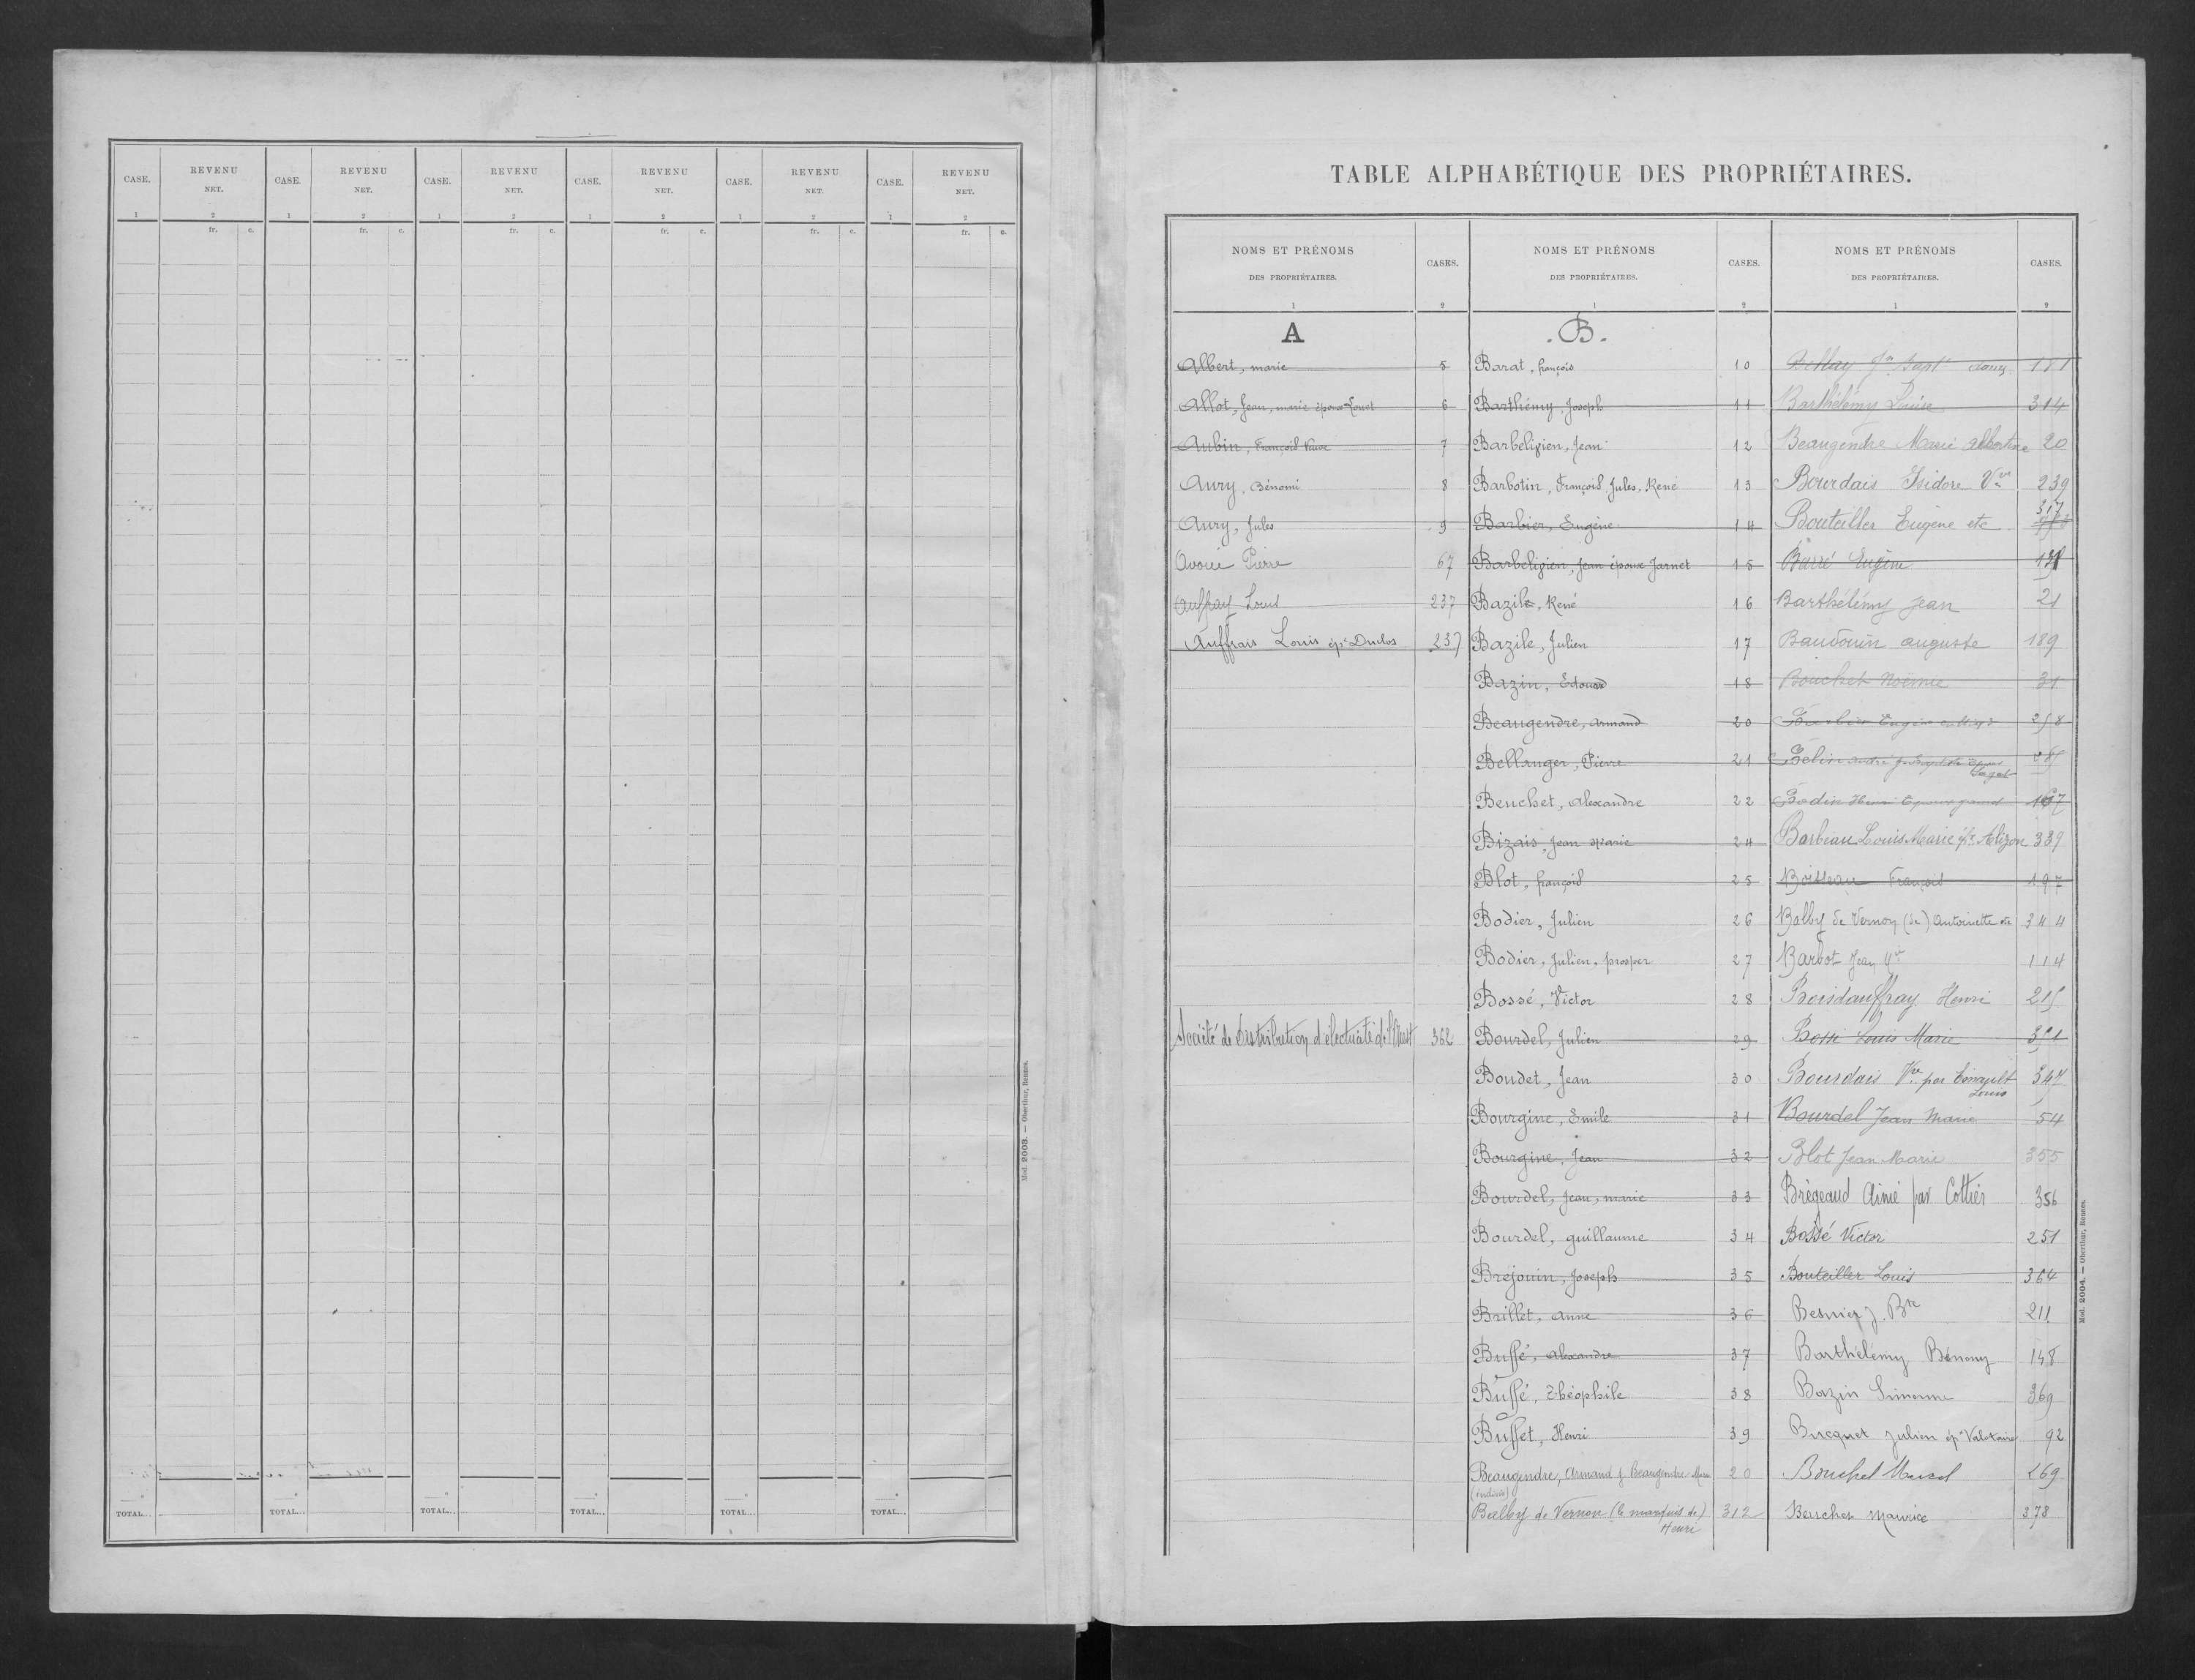 CASE. REVENU NET. CASE. REVENU NET. CASE. REVENU NET. CASE. REVENU NET. CASE. REVENU NET. CASE. REVENU NET.
1 2 1 2 1 2 1 2 1 2 1 2
fr. c. fr. c. fr. c. fr. c. fr. c. fr. c.
TOTAL... TOTAL... TOTAL... TOTAL... TOTAL... TOTAL...
Mod. 2003. — Oberthur, Rennes.
TABLE ALPHABÉTIQUE DES PROPRIÉTAIRES.
NOMS ET PRÉNOMS DES PROPRIÉTAIRES. CASES. NOMS ET PRÉNOMS DES PROPRIÉTAIRES. CASES. NOMS ET PRÉNOMS DES PROPRIÉTAIRES. CASES.
1 2 1 2 1 2
A
Albert, marie 5
Allot, Jean, marie époux Louet 6
Aubin, François Veuve 7
Aury, Bénomi 8
Aury, Jules 9
Avoüé Pierre 67
Auffray Louis 237
Auffrais Louis ép. Duclos 237
Société de Distribution d'électricité de l'Ouest 362
.B.
Barat, françois 10
Barthémy, Joseph 11
Barbeligien, Jean 12
Barbotin, François Jules, René 13
Barbier, Eugène 14
Barbeligien, Jean époux Jarnet 15
Bazile, René 16
Bazile, Julien 17
Bazin, Edouard 18
Beaugendre, armand 20
Bellanger, Pierre 21
Beuchet, Alexandre 22
Bizais, Jean Marie 24
Blot, françois 25
Bodier, Julien 26
Bodier, Julien, prosper 27
Bossé, Victor 28
Bourdel, Julien 29
Boudet, Jean 30
Bourgine, Emile 31
Bourgine, Jean 32
Bourdel, Jean, marie 33
Bourdel, guillaume 34
Bréjouin, Joseph 35
Brillet, anne 36
Buffé, alexandre 37
Buffé, Théophile 38
Buffet, Henri 39
Beaugendre, Armand & Beaugendre Marie 20
(indivis)
Balby de Vernon (le marquis de) 312
Henri
181
Barthélémy Louise 314
Beaugendre Marie albertine 20
Bourdais Isidore Vve 239
Bouteiller Eugène etc 317
Barré Eugène
Barthélémy Jean 21
Baudouin auguste 189
Bouchet Noémie 31
258
Bodin Henri 167
Barbeau Louis Marie ép. Alizon 339
Boisseau François 197
Balby de Vernon (de) Antoinette etc 344
Barbot Jean Vve 114
Boisdauffray Henri 215
Bossé Louis Marie 351
Bourdais Vve par Esnault 347
Louis
Bourdel Jean Marie 54
Blot Jean Marie 355
Brégeaud Aimé par Cottier 356
Bossé Victor 251
Bouteiller Louis 364
Besnier J. Bte 211
Barthélémy Bénony 148
Bazin Simonne 369
Bucquet Julien ép. Valotaire 92
Bouchel Marcel 269
Beuchet Maurice 378
Mod. 2004. — Oberthur, Rennes.